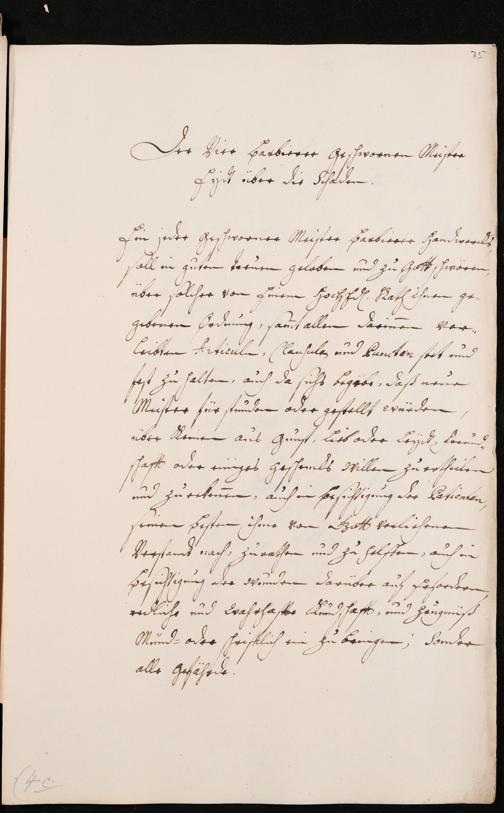 75
Der Vier Barbierer Geschwornen Meister
Eydt über die Schaden.
Ein jeder Geschworner Meister Barbierer Handwercks,
soll in guten treuen geloben und zu Gott schwören,
über solcher von Einem Hochedl. Rath ihnen ge-
gebenen Ordnung, samt allen darinnen ver-
leibten Articuln, Clausulen und Puncten stet und
fest zu halten, auch da sichs begebe, daß neue
Meister für stunden oder gestellt würden,
über keinen aus Gunst, Lieb oder Leydt, Freund-
schafft oder einiges geschencks willen zu ertheilen
und zu erkennen, auch in besichtigung der Patienten,
seinem besten ihme von Gott verliehenen
Verstandt nach, zu rathen und zu helffen, auch in
besichtigung der Wunden darüber auf erfordern,
redliche und wahrhaffte Kundschafft, und Zeugniß
Münd- oder schrifftlich ein zu bringen; Sonder
alle Gefährde.
(4 c.